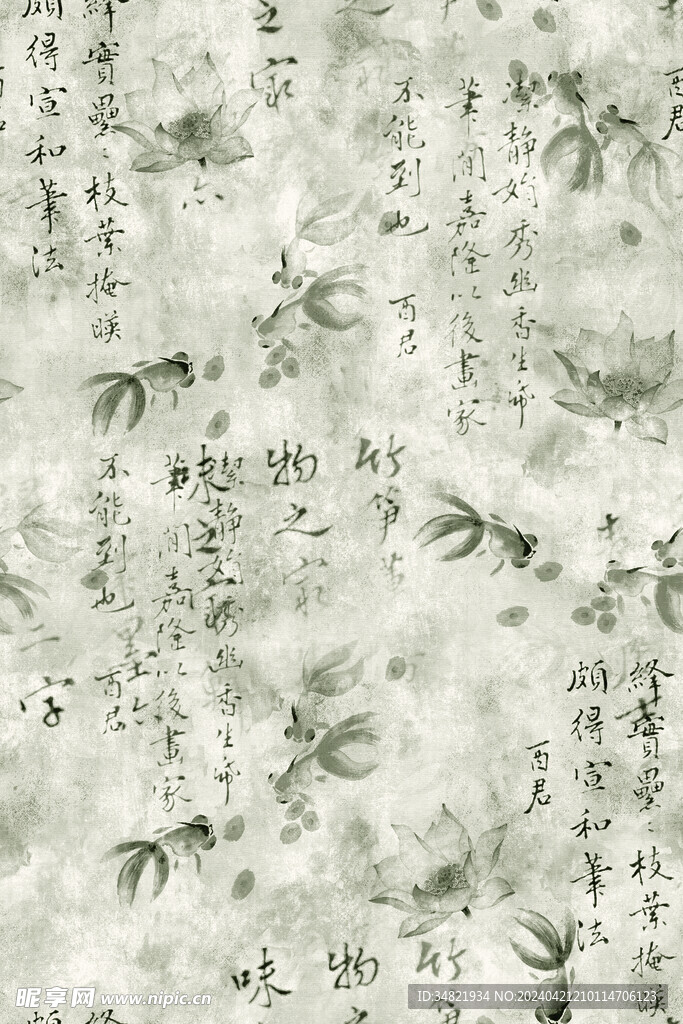 絳實纍纍枝葉掩暎
頗得宣和筆法
酉君
之
家
六
潔靜娟秀幽香生
筆間嘉隆以後畫家
不能到也
酉君
竹
筍
物
之
家
味
之
潔靜娟秀幽香生
筆間嘉隆以後畫家
不能到也
酉君
墨
六
二
字
絳實纍纍枝葉掩暎
頗得宣和筆法
酉君
竹
筍
物
之
味
昵享网 www.nipic.cn
ID:34821934 NO:20240421210114706123